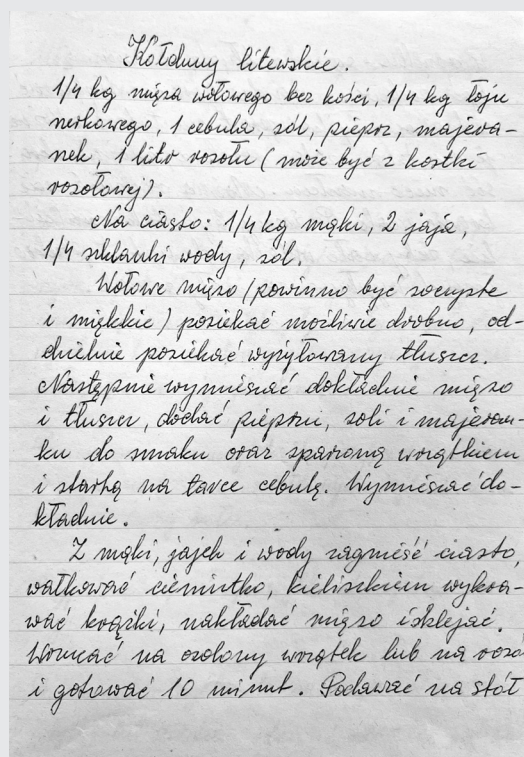 Kołduny litewskie.
1/4 kg mięsa wołowego bez kości, 1/4 kg łoju
nerkowego, 1 cebula, sól, pieprz, majera-
nek, 1 litr rosołu (może być z kostki
rosołowej).
Na ciasto: 1/4 kg mąki, 2 jaja,
1/4 szklanki wody, sól.
Wołowe mięso (powinno być soczyste
i miękkie) posiekać możliwie drobno, od-
dzielnie posiekać wyżyłowany tłuszcz.
Następnie wymieszać dokładnie mięso
i tłuszcz, dodać pieprzu, soli i majeran-
ku do smaku oraz sparzoną wrzątkiem
i startą na tarce cebulę. Wymieszać do-
kładnie.
Z mąki, jajek i wody zagnieść ciasto,
wałkować cieniutko, kieliszkiem wykra-
wać krążki, nakładać mięso i sklejać.
Wrzucać na osolony wrzątek lub na roso
i gotować 10 minut. Podawać na stół